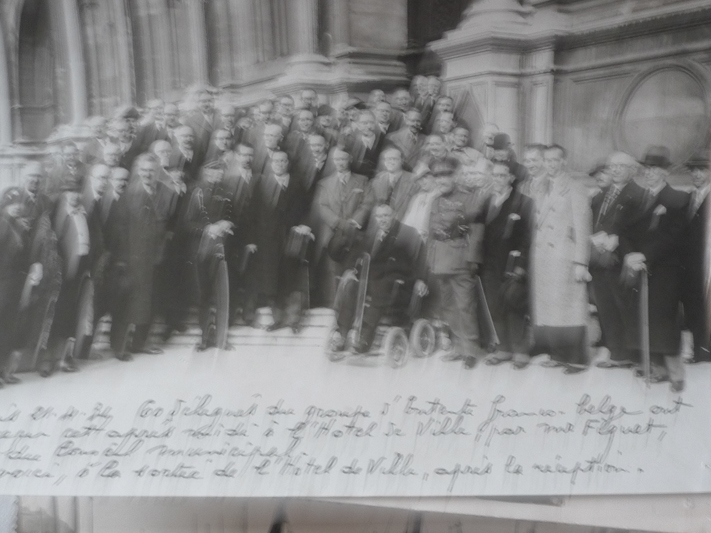 Les Délégués du groupe d'Entente franco-belge ont
cet après midi à l'Hotel de Ville, par mr
du Conseil municipal
à la sortie de l'Hôtel de Ville, après la réception.